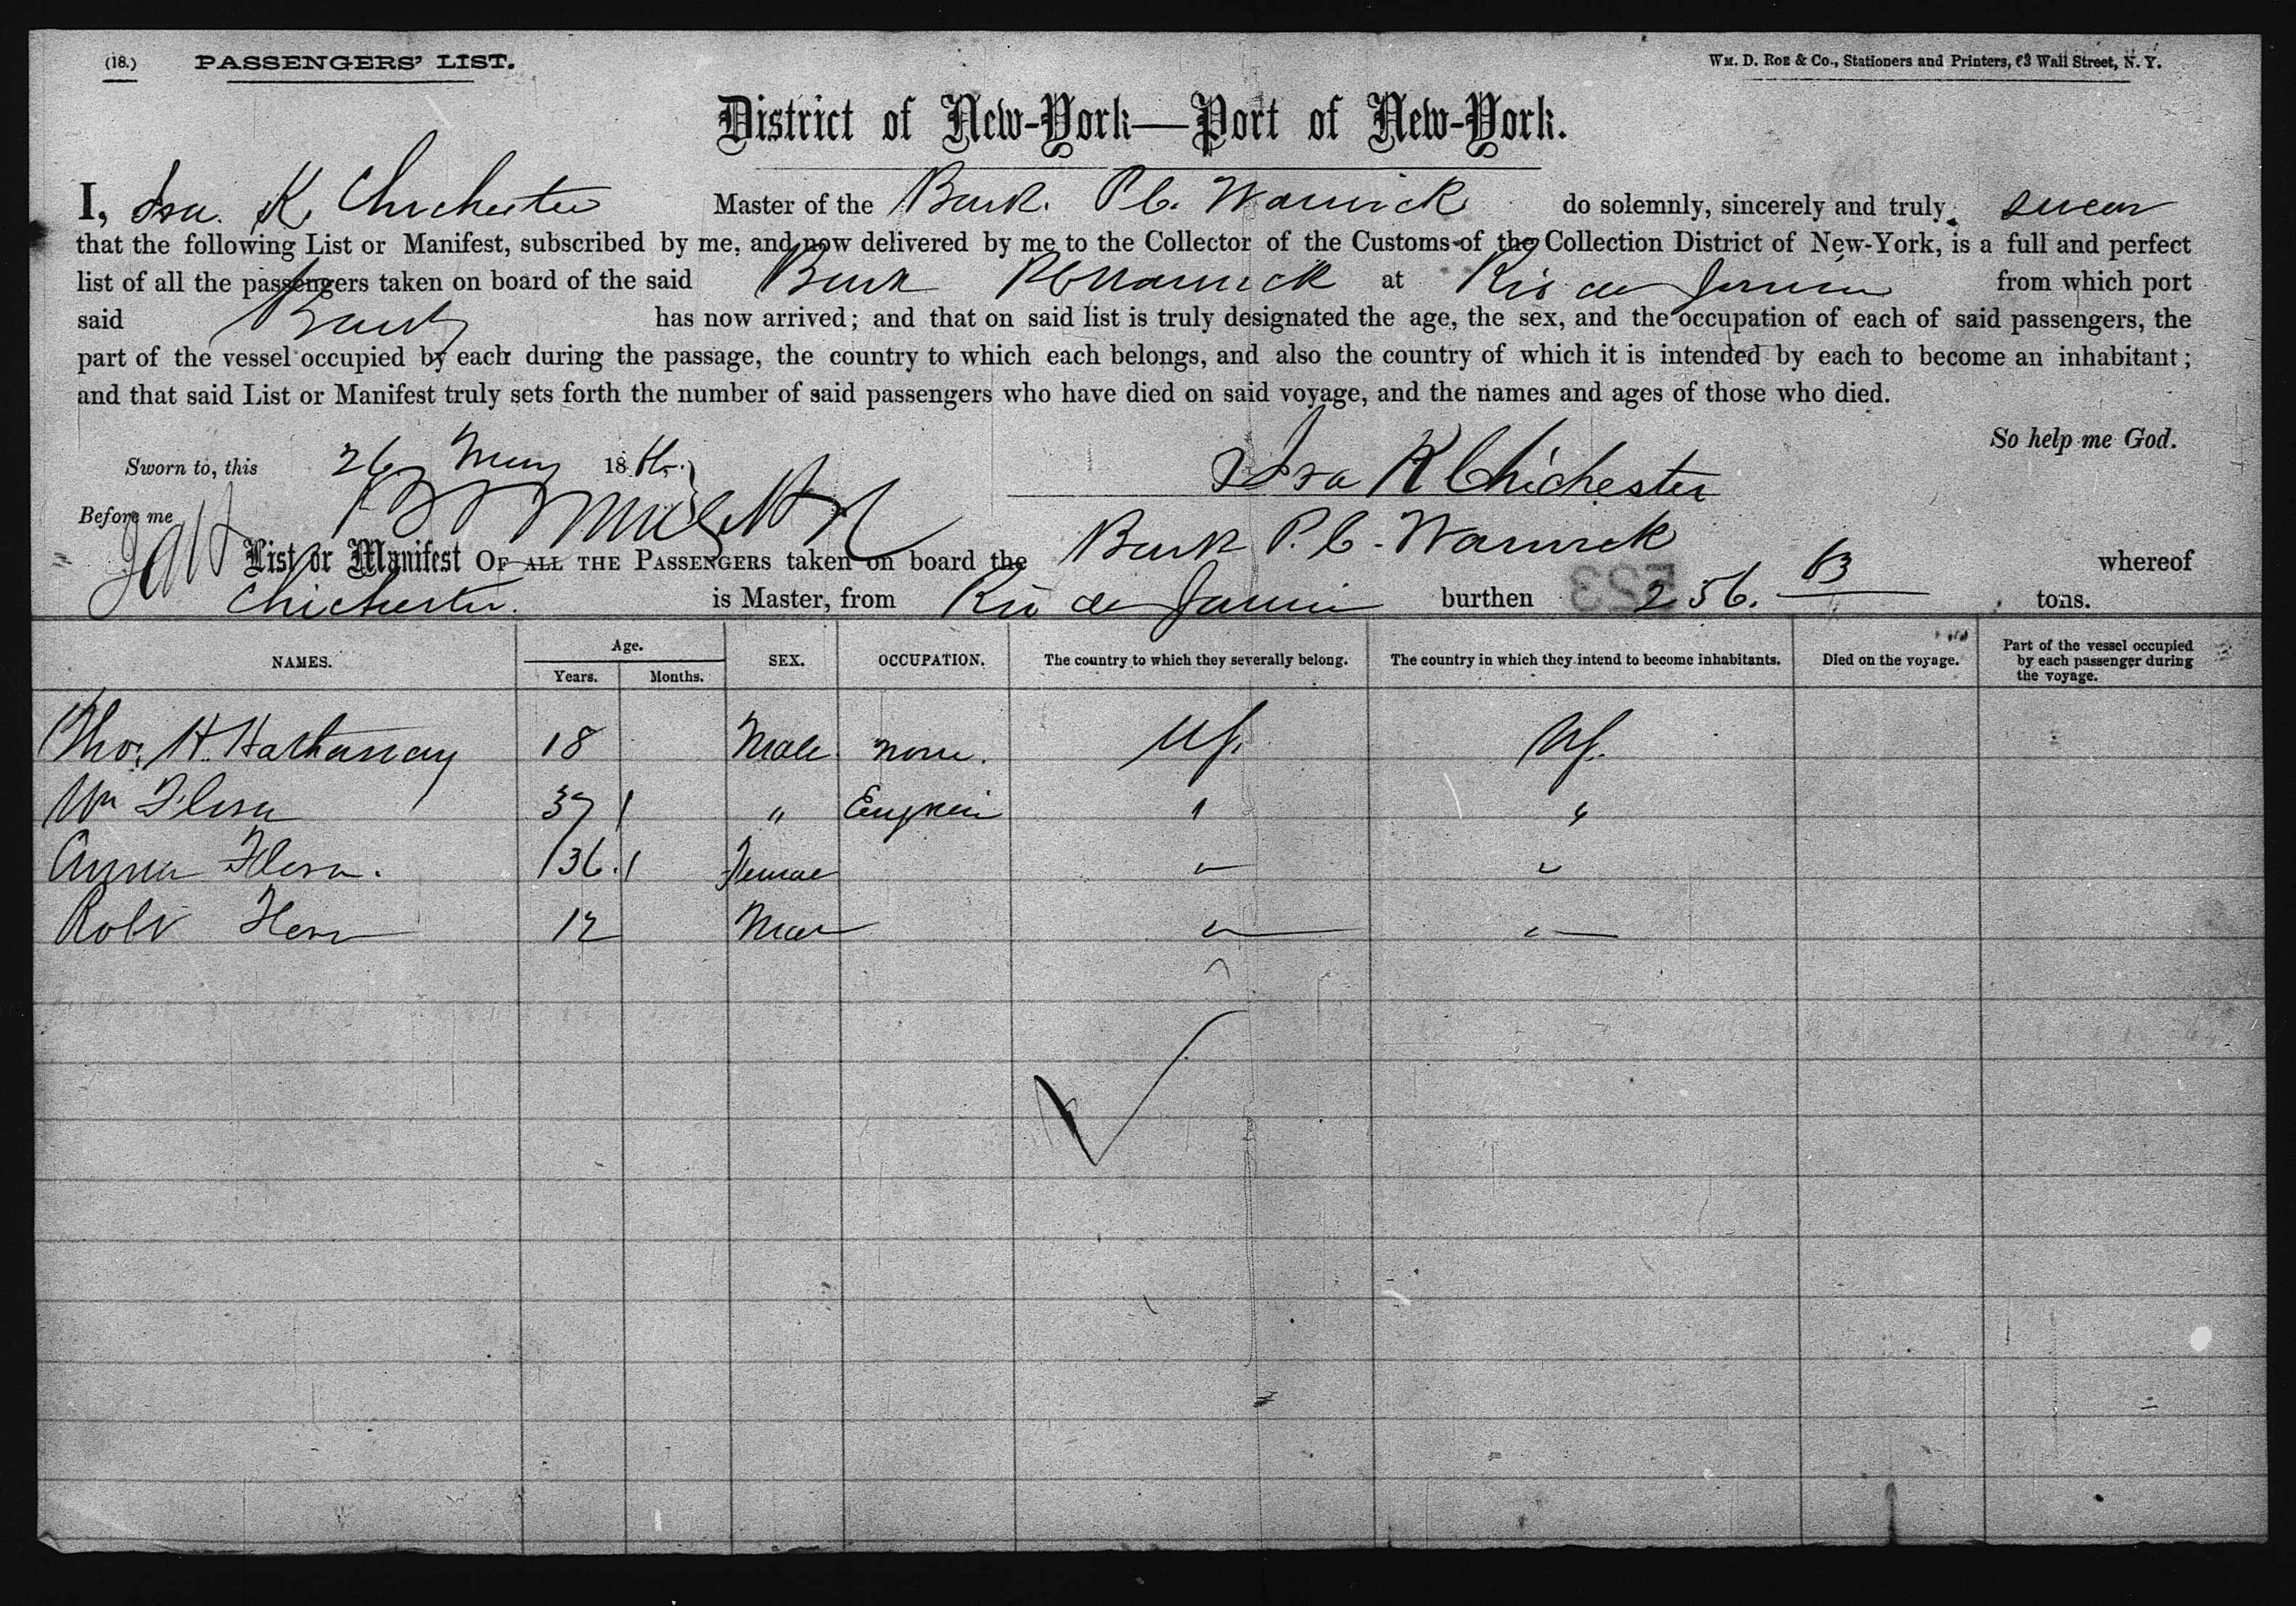 (18.) PASSENGERS' LIST.
Wm. D. Roe & Co., Stationers and Printers, 63 Wall Street, N. Y.
District of New-York—Port of New-York.
I, Isra K. Chichester Master of the Bark. P. C. Warwick do solemnly, sincerely and truly swear
that the following List or Manifest, subscribed by me, and now delivered by me to the Collector of the Customs of the Collection District of New-York, is a full and perfect
list of all the passengers taken on board of the said Bark P C Warwick at Rio de Janeiro from which port
said Bark has now arrived; and that on said list is truly designated the age, the sex, and the occupation of each of said passengers, the
part of the vessel occupied by each during the passage, the country to which each belongs, and also the country of which it is intended by each to become an inhabitant;
and that said List or Manifest truly sets forth the number of said passengers who have died on said voyage, and the names and ages of those who died.
So help me God.
Sworn to, this 26 May 18
Isra K Chichester
Before me
List or Manifest OF ALL THE PASSENGERS taken on board the Bark P. C. Warwick whereof
Chichester. is Master, from Rio de Janeiro burthen 256. 63 tons.
NAMES. Age. Years. Months. SEX. OCCUPATION. The country to which they severally belong. The country in which they intend to become inhabitants. Died on the voyage. Part of the vessel occupied by each passenger during the voyage.
Thos. H. Hathaway 18 Male none. US. US.
Wm 37 " "
Anna 36. Female
Robt 12 Male